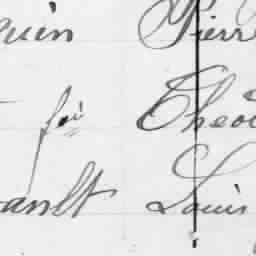 quin Pierr
foi Théo
ault Louis